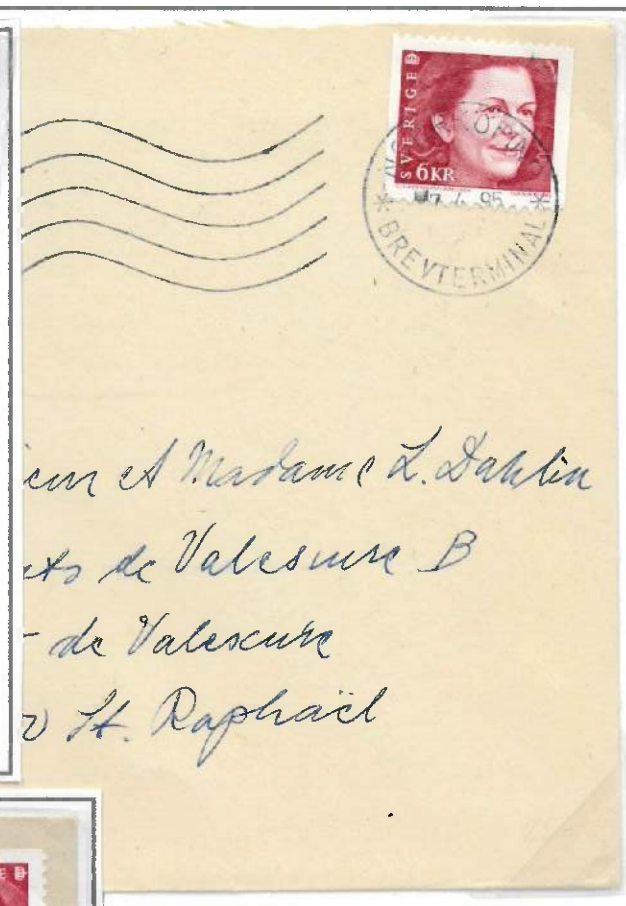 SVERIGE
6KR
* BREVTERMINAL *
et Madame L. Dahlin
de Valescure B
de Valescure
St. Raphaël